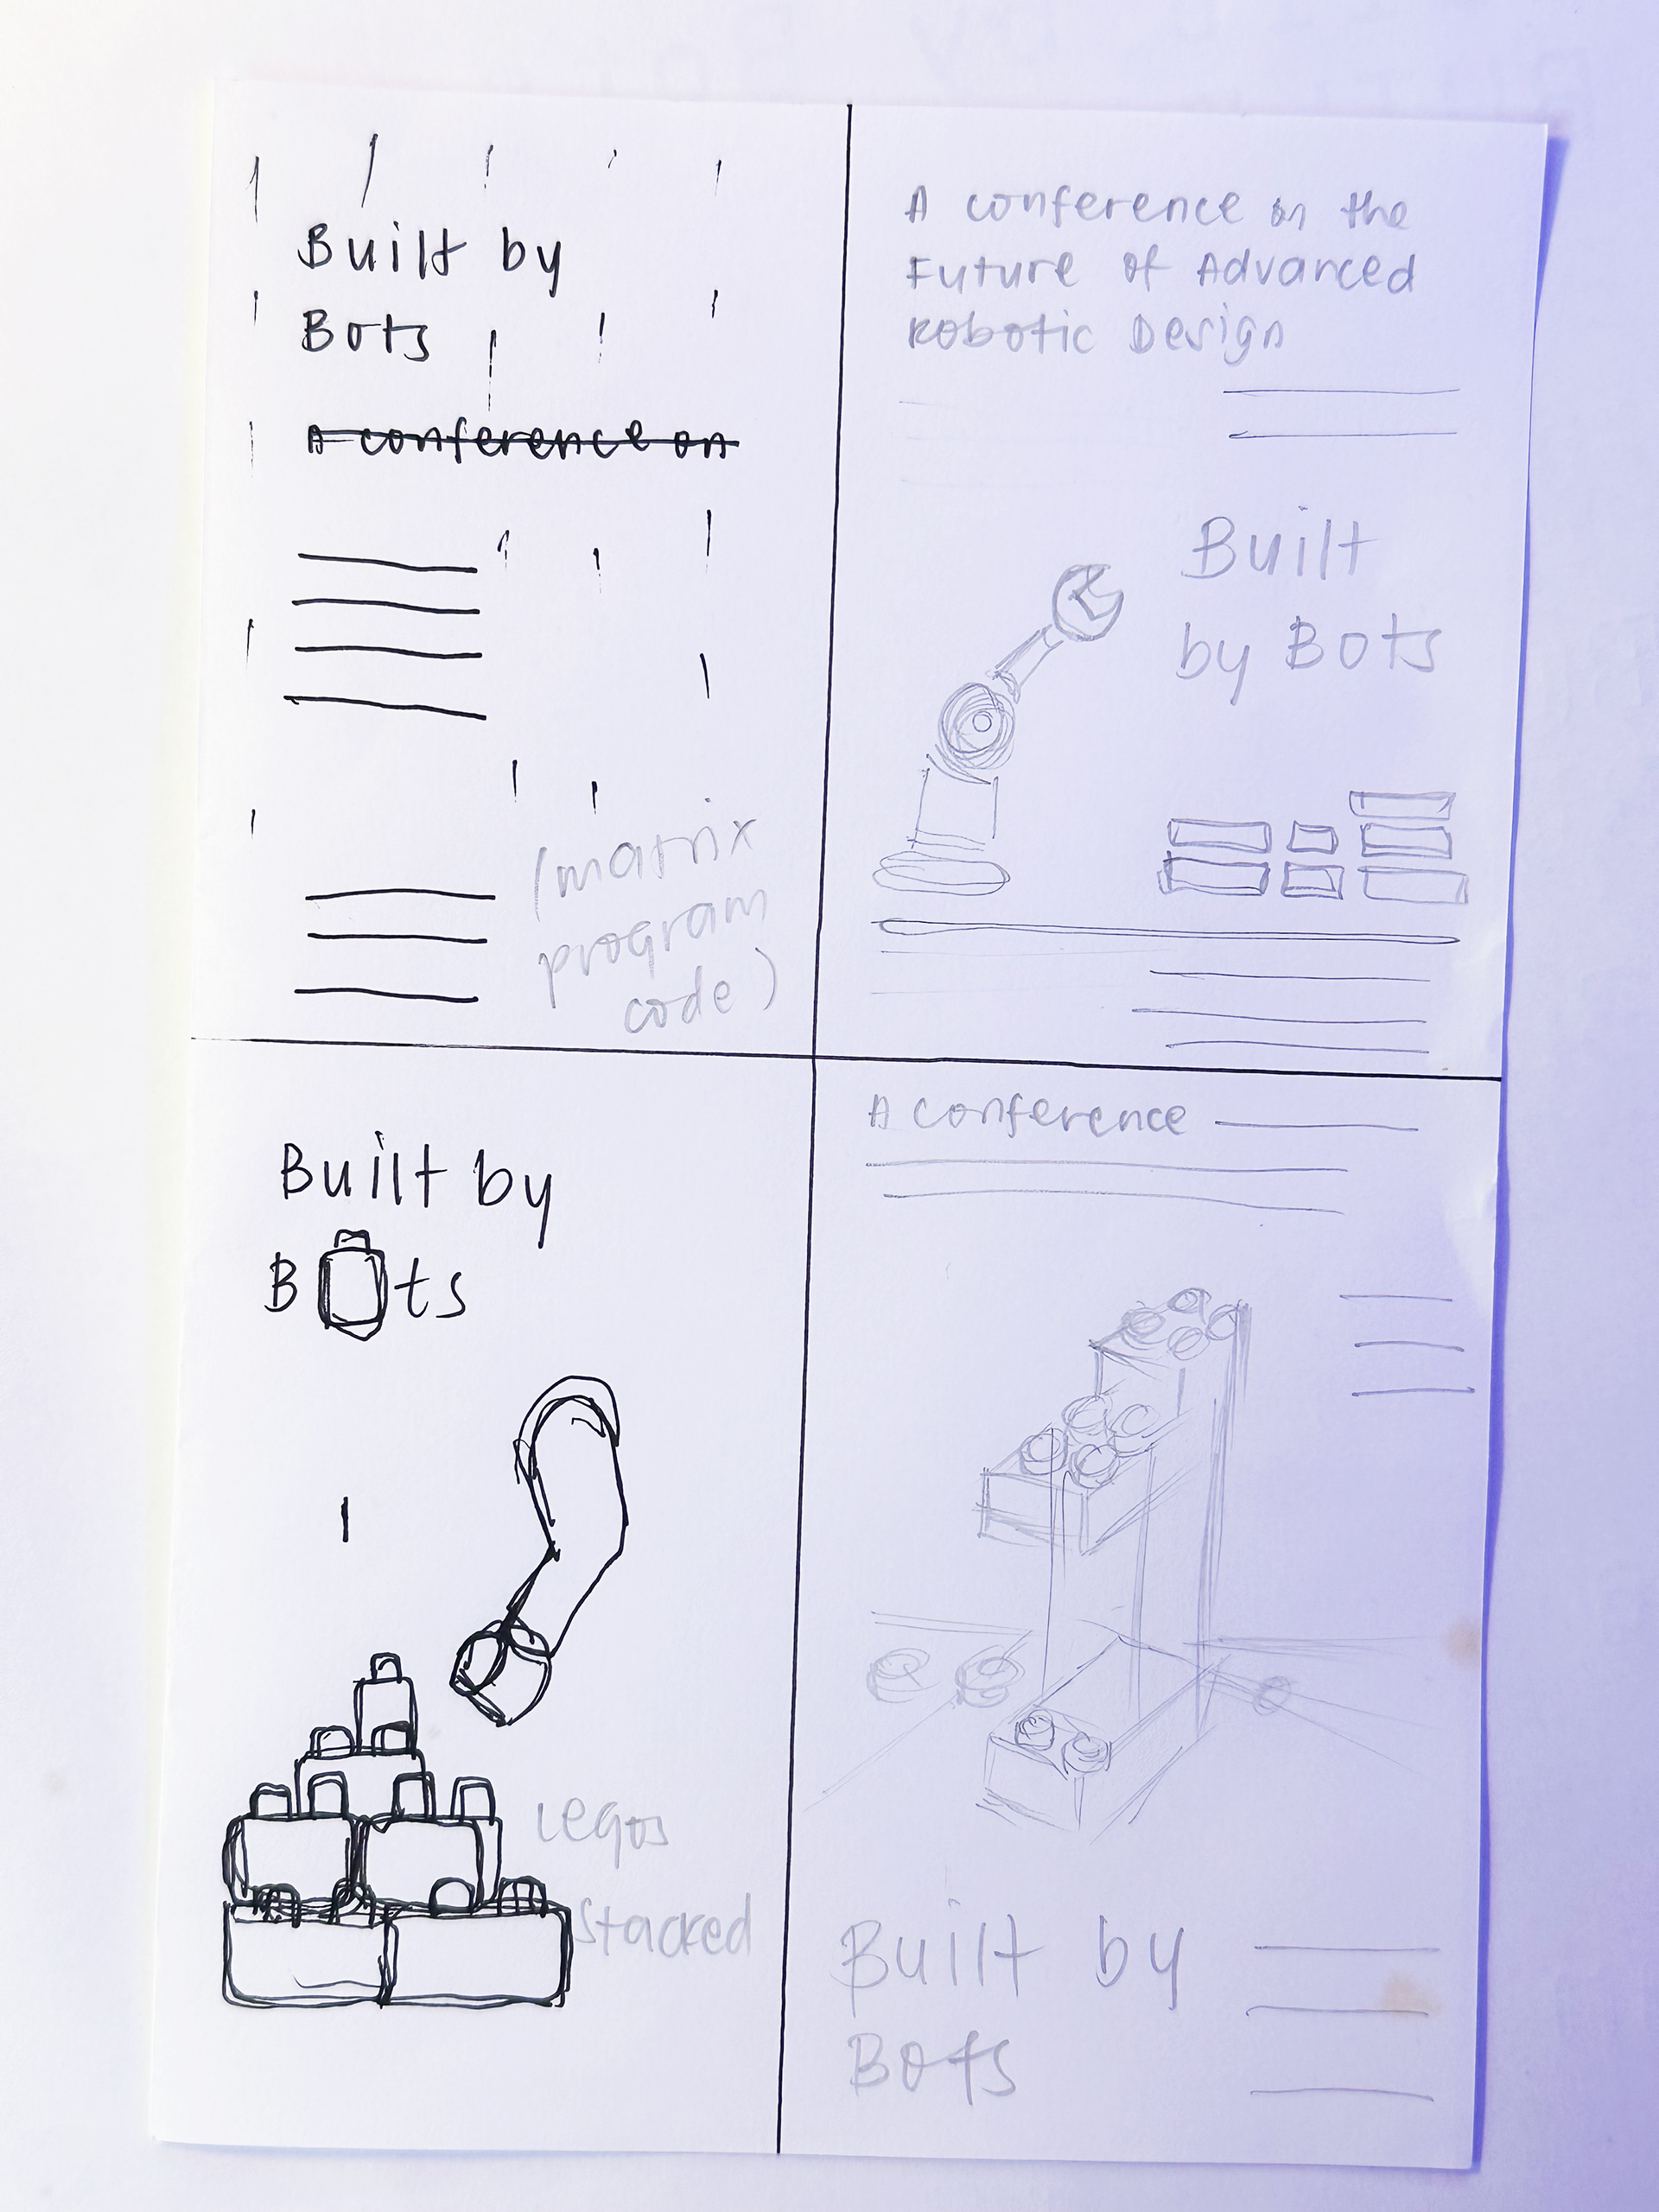 Built by
Bots
A conference on
(matrix
program
code)
A conference on the
Future of Advanced
Robotic Design
Built
by Bots
Built by
Bots
Legos
Stacked
A conference
Built by
Bots